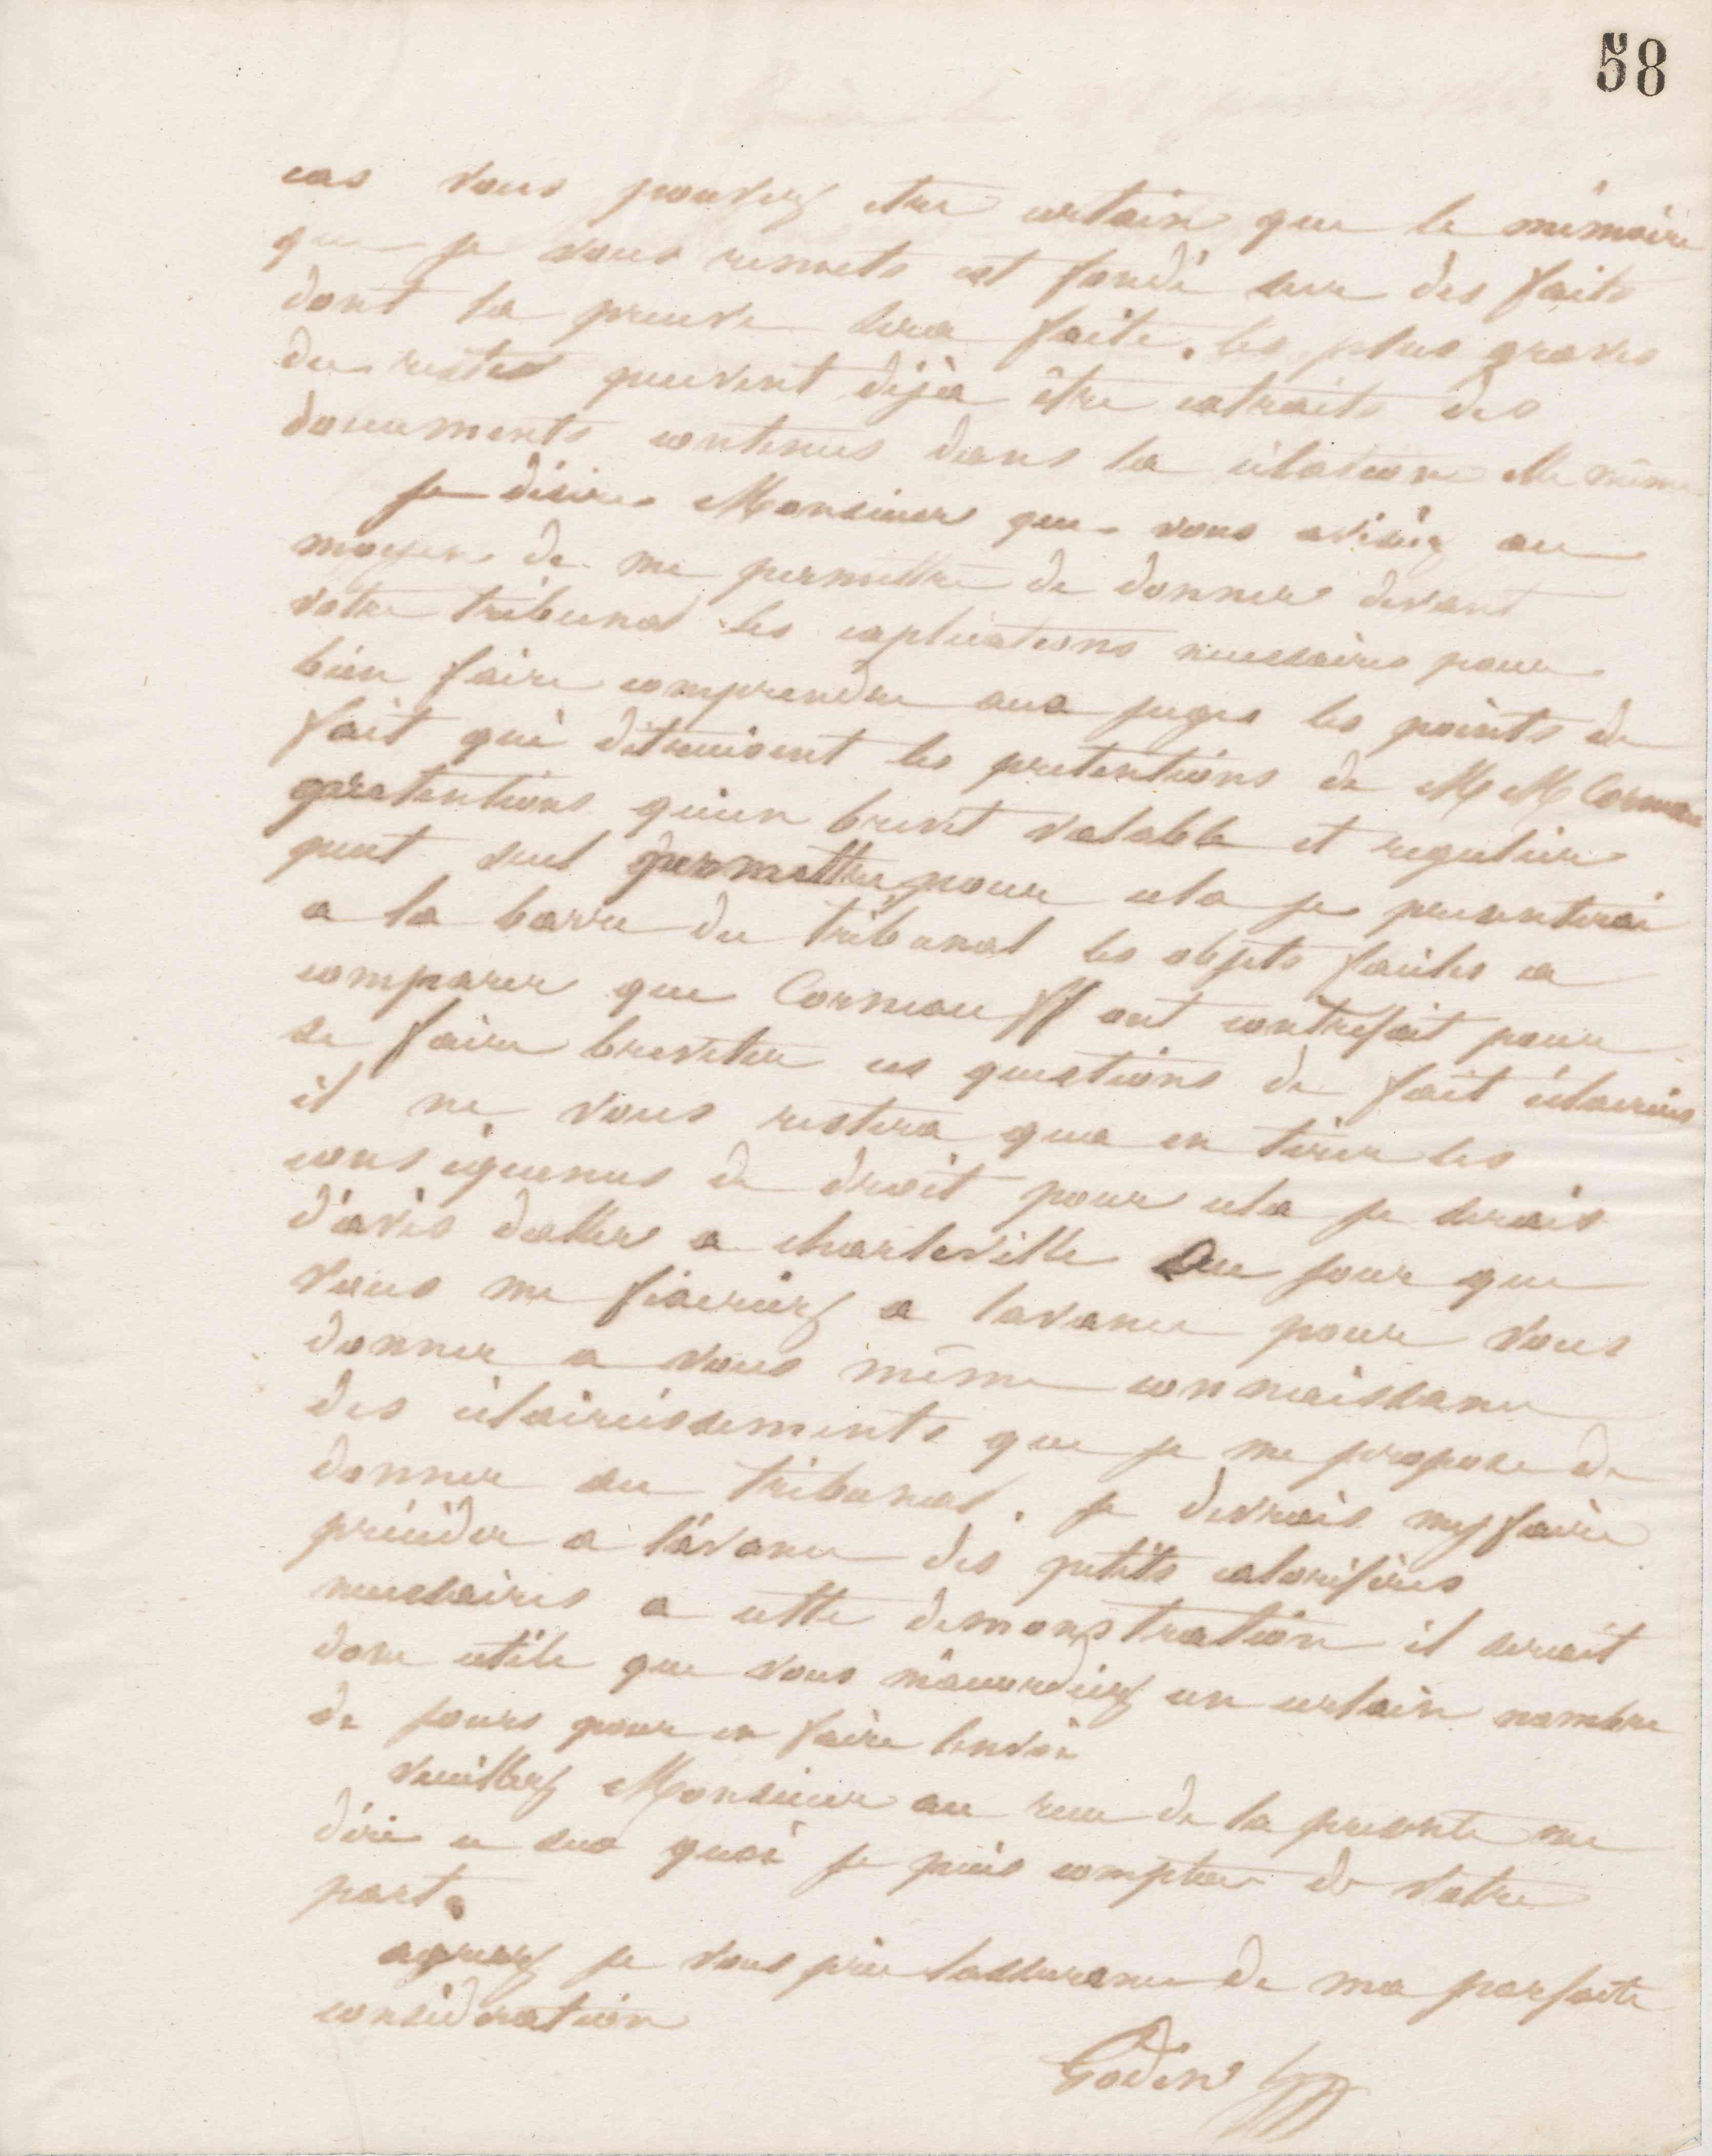 58
cas vous pouvez etre certain que le mémoire
que je vous remets est fondé sur des faits
dont la preuve sera faite. les plus graves
du reste peuvent déjà être extraits des
documents contenus dans la citation elle même
je désire Monsieur que vous avisiez au
moyen de me permettre de donner devant
votre tribunal les explications necessaires pour
bien faire comprendre aux juges les points de
fait qui détruisent les pretentions de MM Corneau
pretentions qu'un brevet valable et regulier
peut seul permettre, pour cela je presenterai
a la barre du tribunal les objets faciles a
comparer que Corneau ff ont contrefait pour
se faire breveter ces questions de fait éclaircies
il ne vous restera qua en tirer les
conséquences de droit pour cela je serais
d'avis daller a charleville au jour que
vous me fixeriez a lavance pour vous
donner a vous même connaissance
des éclaircissements que je me propose de
donner au tribunal. je devrais my faire
précéder a l'avance des petits calorifères
necessaires a cette demonstration il serait
donc utile que vous m'accordiez un certain nombre
de jours pour en faire lenvoi
veuillez Monsieur au recu de la presente me
dire a quoi je puis compter de votre
part.
agreez je vous prie lassurance de ma parfaite
consideration
Godin